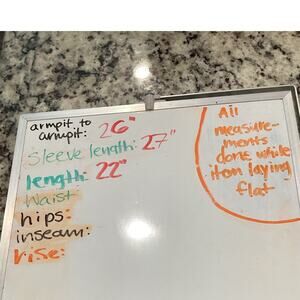 armpit to
armpit: 26"
Sleeve length: 27"
length: 22"
Waist
hips:
inseam:
rise:
All
measure-
ments
done while
item laying
flat